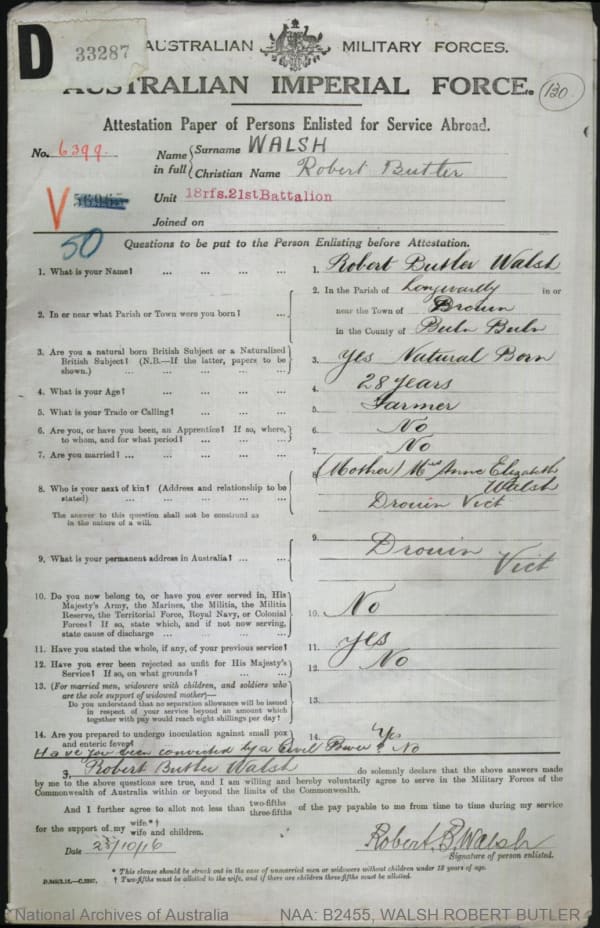 D
33287
AUSTRALIAN MILITARY FORCES.
AUSTRALIAN IMPERIAL FORCE.
130
Attestation Paper of Persons Enlisted for Service Abroad.
No. 6399
Name in full
Surname WALSH
Christian Name Robert Butler
V
Unit 18rfs.21stBattalion
Joined on
50
Questions to be put to the Person Enlisting before Attestation.
1. What is your Name? ... ... ... ...
1. Robert Butler Walsh
2. In or near what Parish or Town were you born? ...
2. In the Parish of Longwarry in or
near the Town of Drouin
in the County of Buln Buln
3. Are you a natural born British Subject or a Naturalized
British Subject? (N.B.—If the latter, papers to be
shown.) ... ... ... ...
3. Yes Natural Born
4. What is your Age? ... ... ... ...
4. 28 years
5. What is your Trade or Calling? ... ... ...
5. Farmer
6. Are you, or have you been, an Apprentice? If so, where,
to whom, and for what period? ... ... ...
6. No
7. Are you married? ... ... ... ... ...
7. No
8. Who is your next of kin? (Address and relationship to be
stated) ... ... ... ... ...
The answer to this question shall not be construed as
in the nature of a will.
8. (Mother) Mrs Anne Elizabeth
Walsh
Drouin Vict
9. What is your permanent address in Australia? ... ...
9. Drouin
Vict
10. Do you now belong to, or have you ever served in, His
Majesty's Army, the Marines, the Militia, the Militia
Reserve, the Territorial Force, Royal Navy, or Colonial
Forces? If so, state which, and if not now serving,
state cause of discharge ... ... ... ...
10. No
11. Have you stated the whole, if any, of your previous service?
11. Yes
12. Have you ever been rejected as unfit for His Majesty's
Service? If so, on what grounds? ... ... ...
12. No
13. (For married men, widowers with children, and soldiers who
are the sole support of widowed mother)—
Do you understand that no separation allowance will be issued
in respect of your service beyond an amount which
together with pay would reach eight shillings per day?
13.
14. Are you prepared to undergo inoculation against small pox
and enteric fever?
14. Yes
Have you been convicted by a Civil Power? No
I, Robert Butler Walsh do solemnly declare that the above answers made
by me to the above questions are true, and I am willing and hereby voluntarily agree to serve in the Military Forces of the
Commonwealth of Australia within or beyond the limits of the Commonwealth.
And I further agree to allot not less than two-fifths three-fifths of the pay payable to me from time to time during my service
for the support of my wife.*† wife and children.
Date 23/10/16
Robert. B. Walsh
Signature of person enlisted.
* This clause should be struck out in the case of unmarried men or widowers without children under 18 years of age.
† Two-fifths must be allotted to the wife, and if there are children three-fifths must be allotted.
National Archives of Australia
NAA: B2455, WALSH ROBERT BUTLER